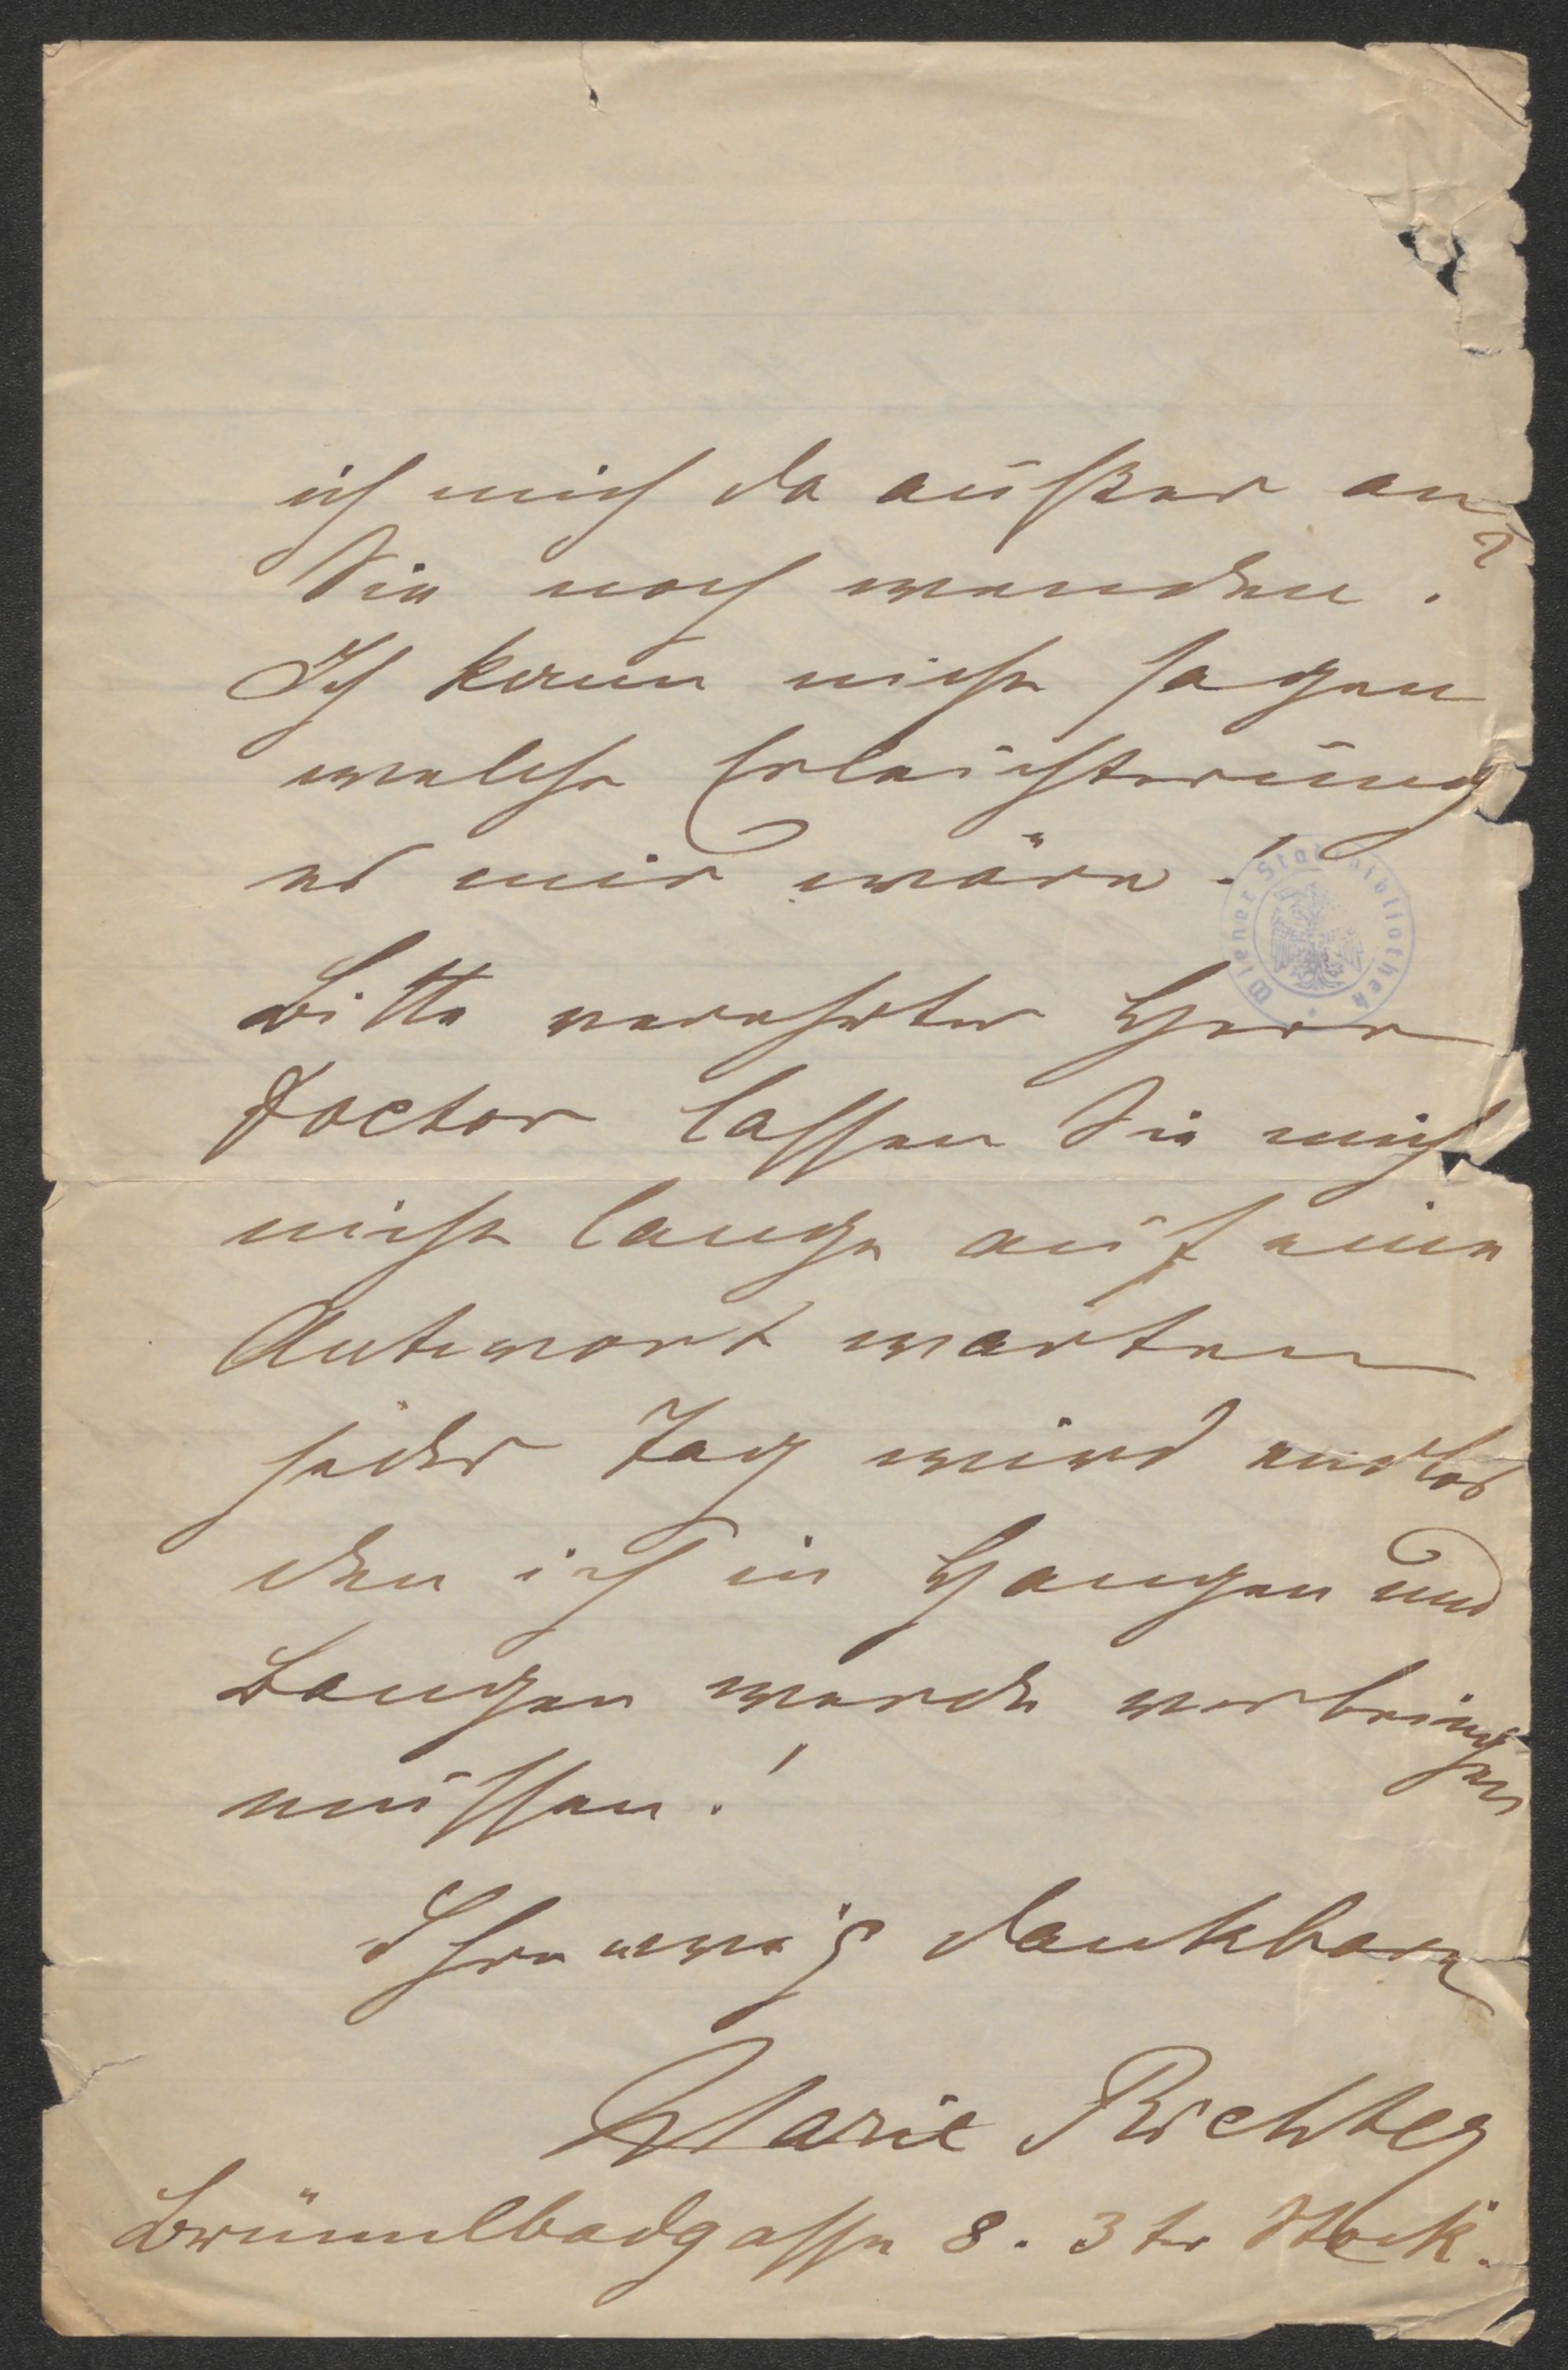 ich mich da außer an
Sie noch wenden?
Ich kann nicht sagen
welche Erleichterung
es mir wäre!
Wiener Stadtbibliothek
Bitte verehrter Herr
Doctor lassen Sie mich
nicht lange auf eine
Antwort warten
jeder Tag wird endlos
den ich in Hangen und
Bangen werde verbringen
müssen!
Ihre ewig dankbare
Marie Richter
Brünnlbadgasse 8. 3ter Stock.